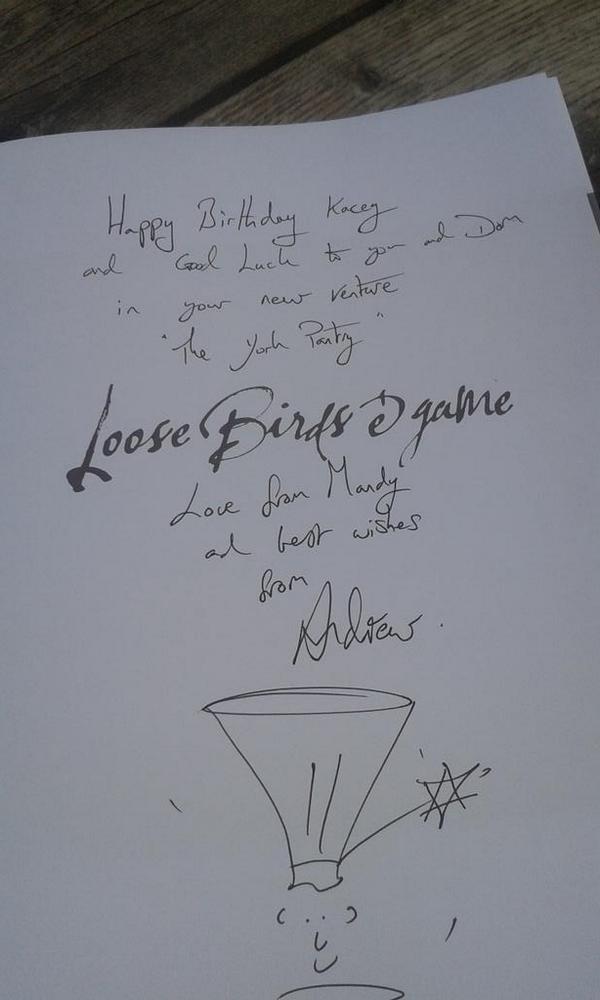 Happy Birthday Kacey
and Good Luck to you and Dom
in your new venture
"The York Pantry"
Loose Birds & game
Love from Mandy
and best wishes
from
Andrew.